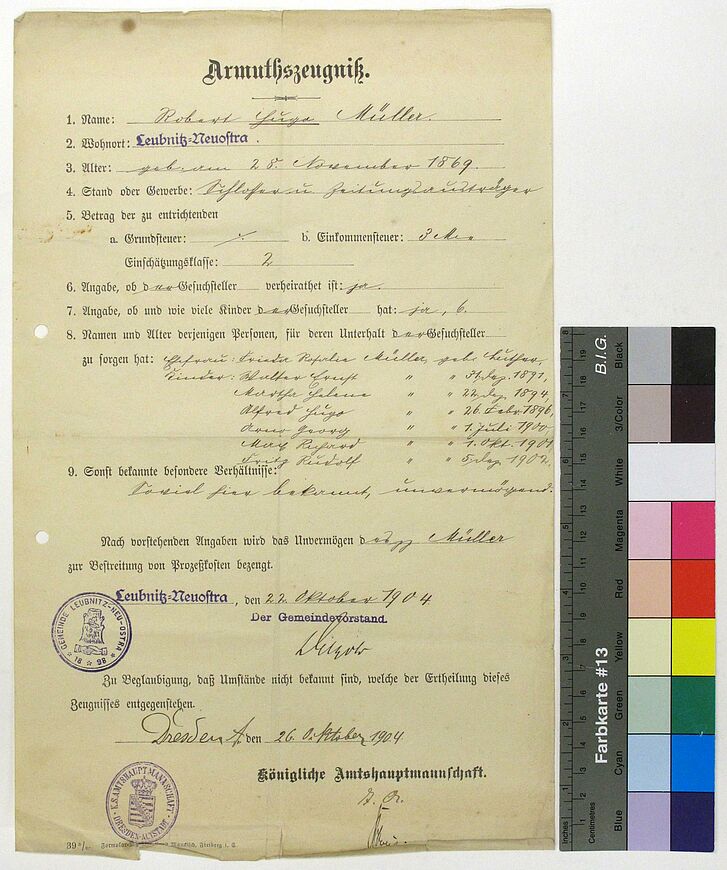 Armuthszeugniß.
1. Name: Robert Hugo Müller.
2. Wohnort: Leubnitz-Neuostra.
3. Alter: geb. am 28. November 1869.
4. Stand oder Gewerbe: Schlosser u. Zeitungsausträger
5. Betrag der zu entrichtenden
a. Grundsteuer: ./. b. Einkommensteuer: 3 M
Einschätzungsklasse: 2
6. Angabe, ob der Gesuchsteller verheirathet ist: ja.
7. Angabe, ob und wie viele Kinder der Gesuchsteller hat: ja, 6.
8. Namen und Alter derjenigen Personen, für deren Unterhalt der Gesuchsteller
zu sorgen hat: Ehefrau: Frieda Rosalie Müller, geb. Luther,
Kinder: Walter Ernst " " 31. Dez. 1891,
Martha Helene " " 22. Dez. 1894,
Alfred Hugo " " 26. Febr. 1896,
Arno Georg " " 1. Juli 1900
Max Richard " " 1. Okt. 1901
Fritz Rudolf " " 5. Dez. 1902.
9. Sonst bekannte besondere Verhältnisse:
Soviel hier bekannt, unvermögend.
Nach vorstehenden Angaben wird das Unvermögen Müller
zur Bestreitung von Prozeßkosten bezeugt.
Leubnitz-Neuostra, den 22. Oktober 1904
Der Gemeindevorstand.
GEMEINDE LEUBNITZ-NEU-OSTRA
* 18 * 98 *
Zu Beglaubigung, daß Umstände nicht bekannt sind, welche der Ertheilung dieses
Zeugnisses entgegenstehen.
Dresden A, den 26. Oktober 1904
Königliche Amtshauptmannschaft.
K.S. AMTSHAUPTMANNSCHAFT
DRESDEN-ALTSTADT
39 Freiberg i. S.
B.I.G.
Farbkarte #13
Inches
Centimetres
Blue
Cyan
Green
Yellow
Red
Magenta
White
3/Color
Black